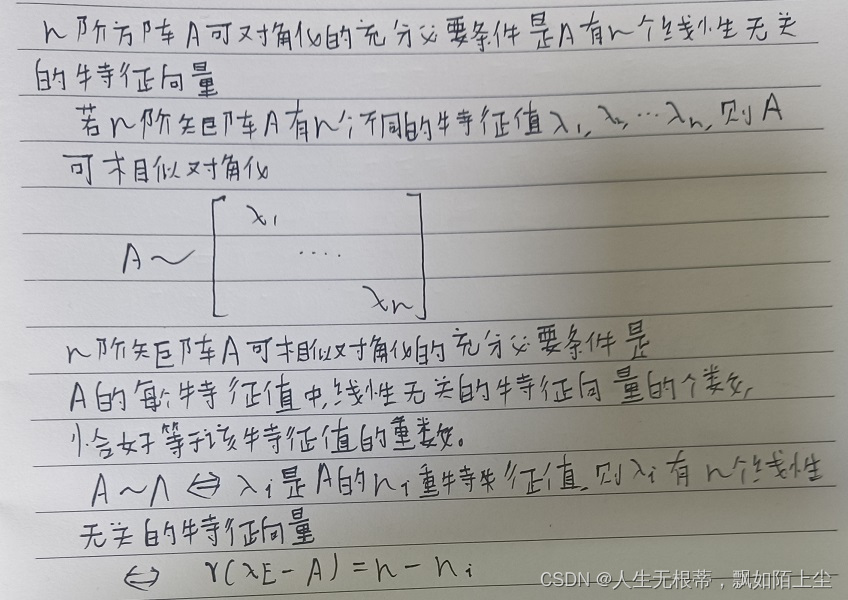 n阶方阵A可对角化的充分必要条件是A有n个线性无关
的特征向量
若n阶矩阵A有n个不同的特征值λ1, λ2, …λn, 则A
可相似对角化
A～[λ1
....
λn]
n阶矩阵A可相似对角化的充分必要条件是
A的每个特征值中,线性无关的特征向量的个数,
恰好等于该特征值的重数。
A～Λ ⇔ λi是A的ni重特征值,则λi有n个线性
无关的特征向量
⇔ r(λE-A)=n-ni
CSDN @人生无根蒂，飘如陌上尘